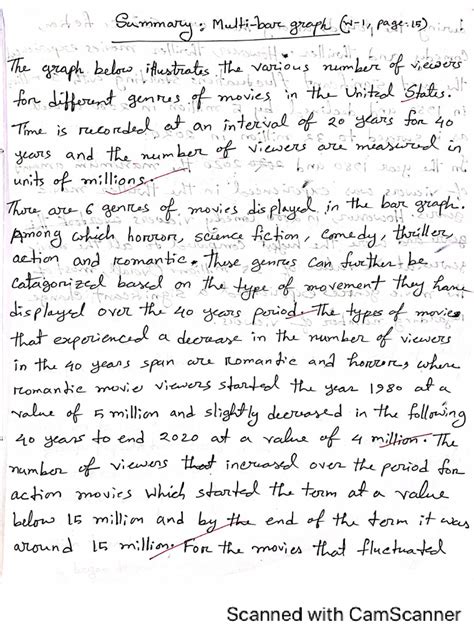 Summary: Multi-bar graph (W-1, page-15)
The graph below illustrates the various number of viewers
for different genres of movies in the United States.
Time is recorded at an interval of 20 years for 40
years and the number of viewers are measured in
units of millions.
There are 6 genres of movies displayed in the bar graph.
Among which horror, science fiction, comedy, thriller,
action and romantic. These genres can further be
catagorized based on the type of movement they have
displayed over the 40 years period. The types of movies
that experienced a decrease in the number of viewers
in the 40 years span are romantic and horror, where
romantic movie viewers started the year 1980 at a
value of 5 million and slightly decreased in the following
40 years to end 2020 at a value of 4 million. The
number of viewers that increased over the period for
action movies which started the term at a value
below 15 million and by the end of the term it was
around 15 million. For the movies that fluctuated
Scanned with CamScanner